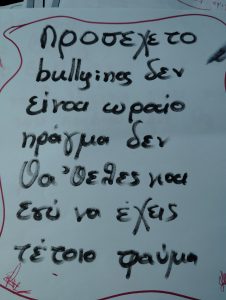 Προσεχετο
bullyings δεν
είναι ωραίο
πράγμα δεν
θα 'θελες και
εσύ να έχεις
τέτοιο τραύμα